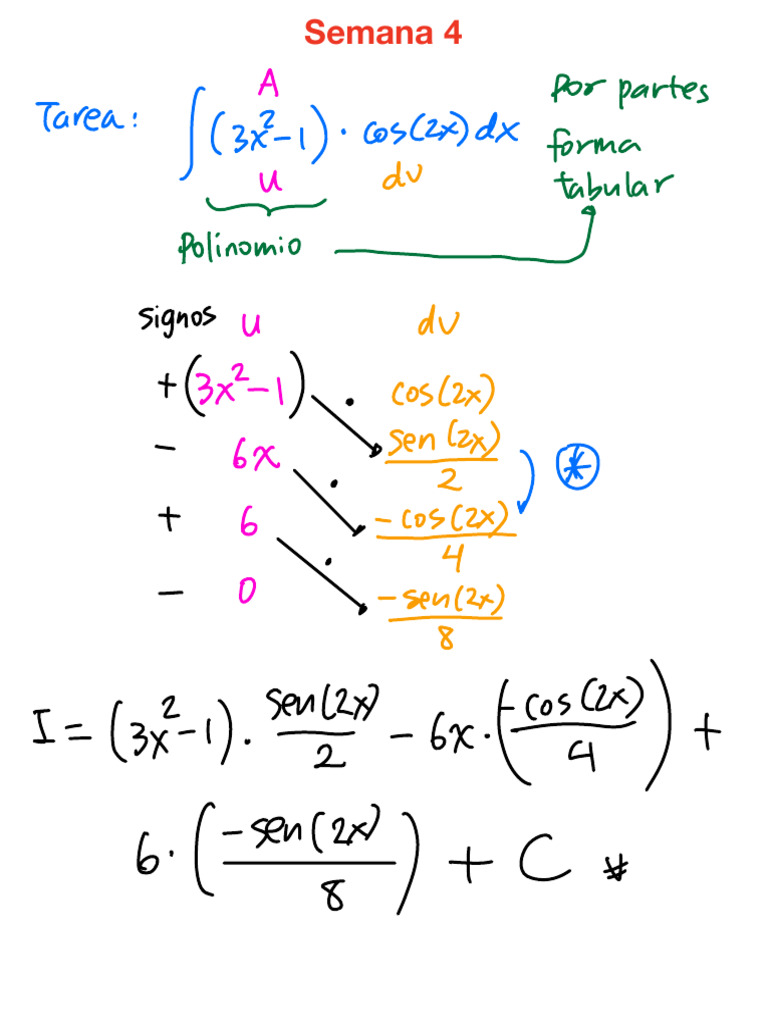 Semana 4
A
Tarea: ∫(3x²-1)·cos(2x)dx
u dv
Por partes
forma
tabular
Polinomio
signos u dv
+(3x²-1) · cos(2x)
- 6x · sen(2x)/2 *
+ 6 · -cos(2x)/4
- 0 · -sen(2x)/8
I = (3x²-1)·sen(2x)/2 - 6x·(-cos(2x)/4) +
6·(-sen(2x)/8) + C #